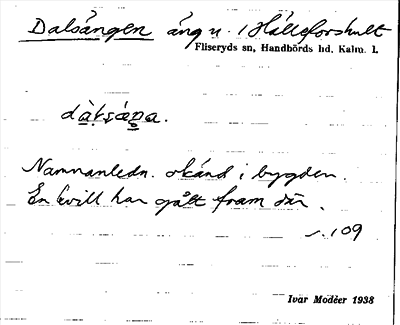 Dalsängen äng u. Hälleforshult
Fliseryds sn, Handbörds hd. Kalm. l.
Namnanledn. okänd i bygden.
En kvill har gått fram där.
s. 109
Ivar Modéer 1938